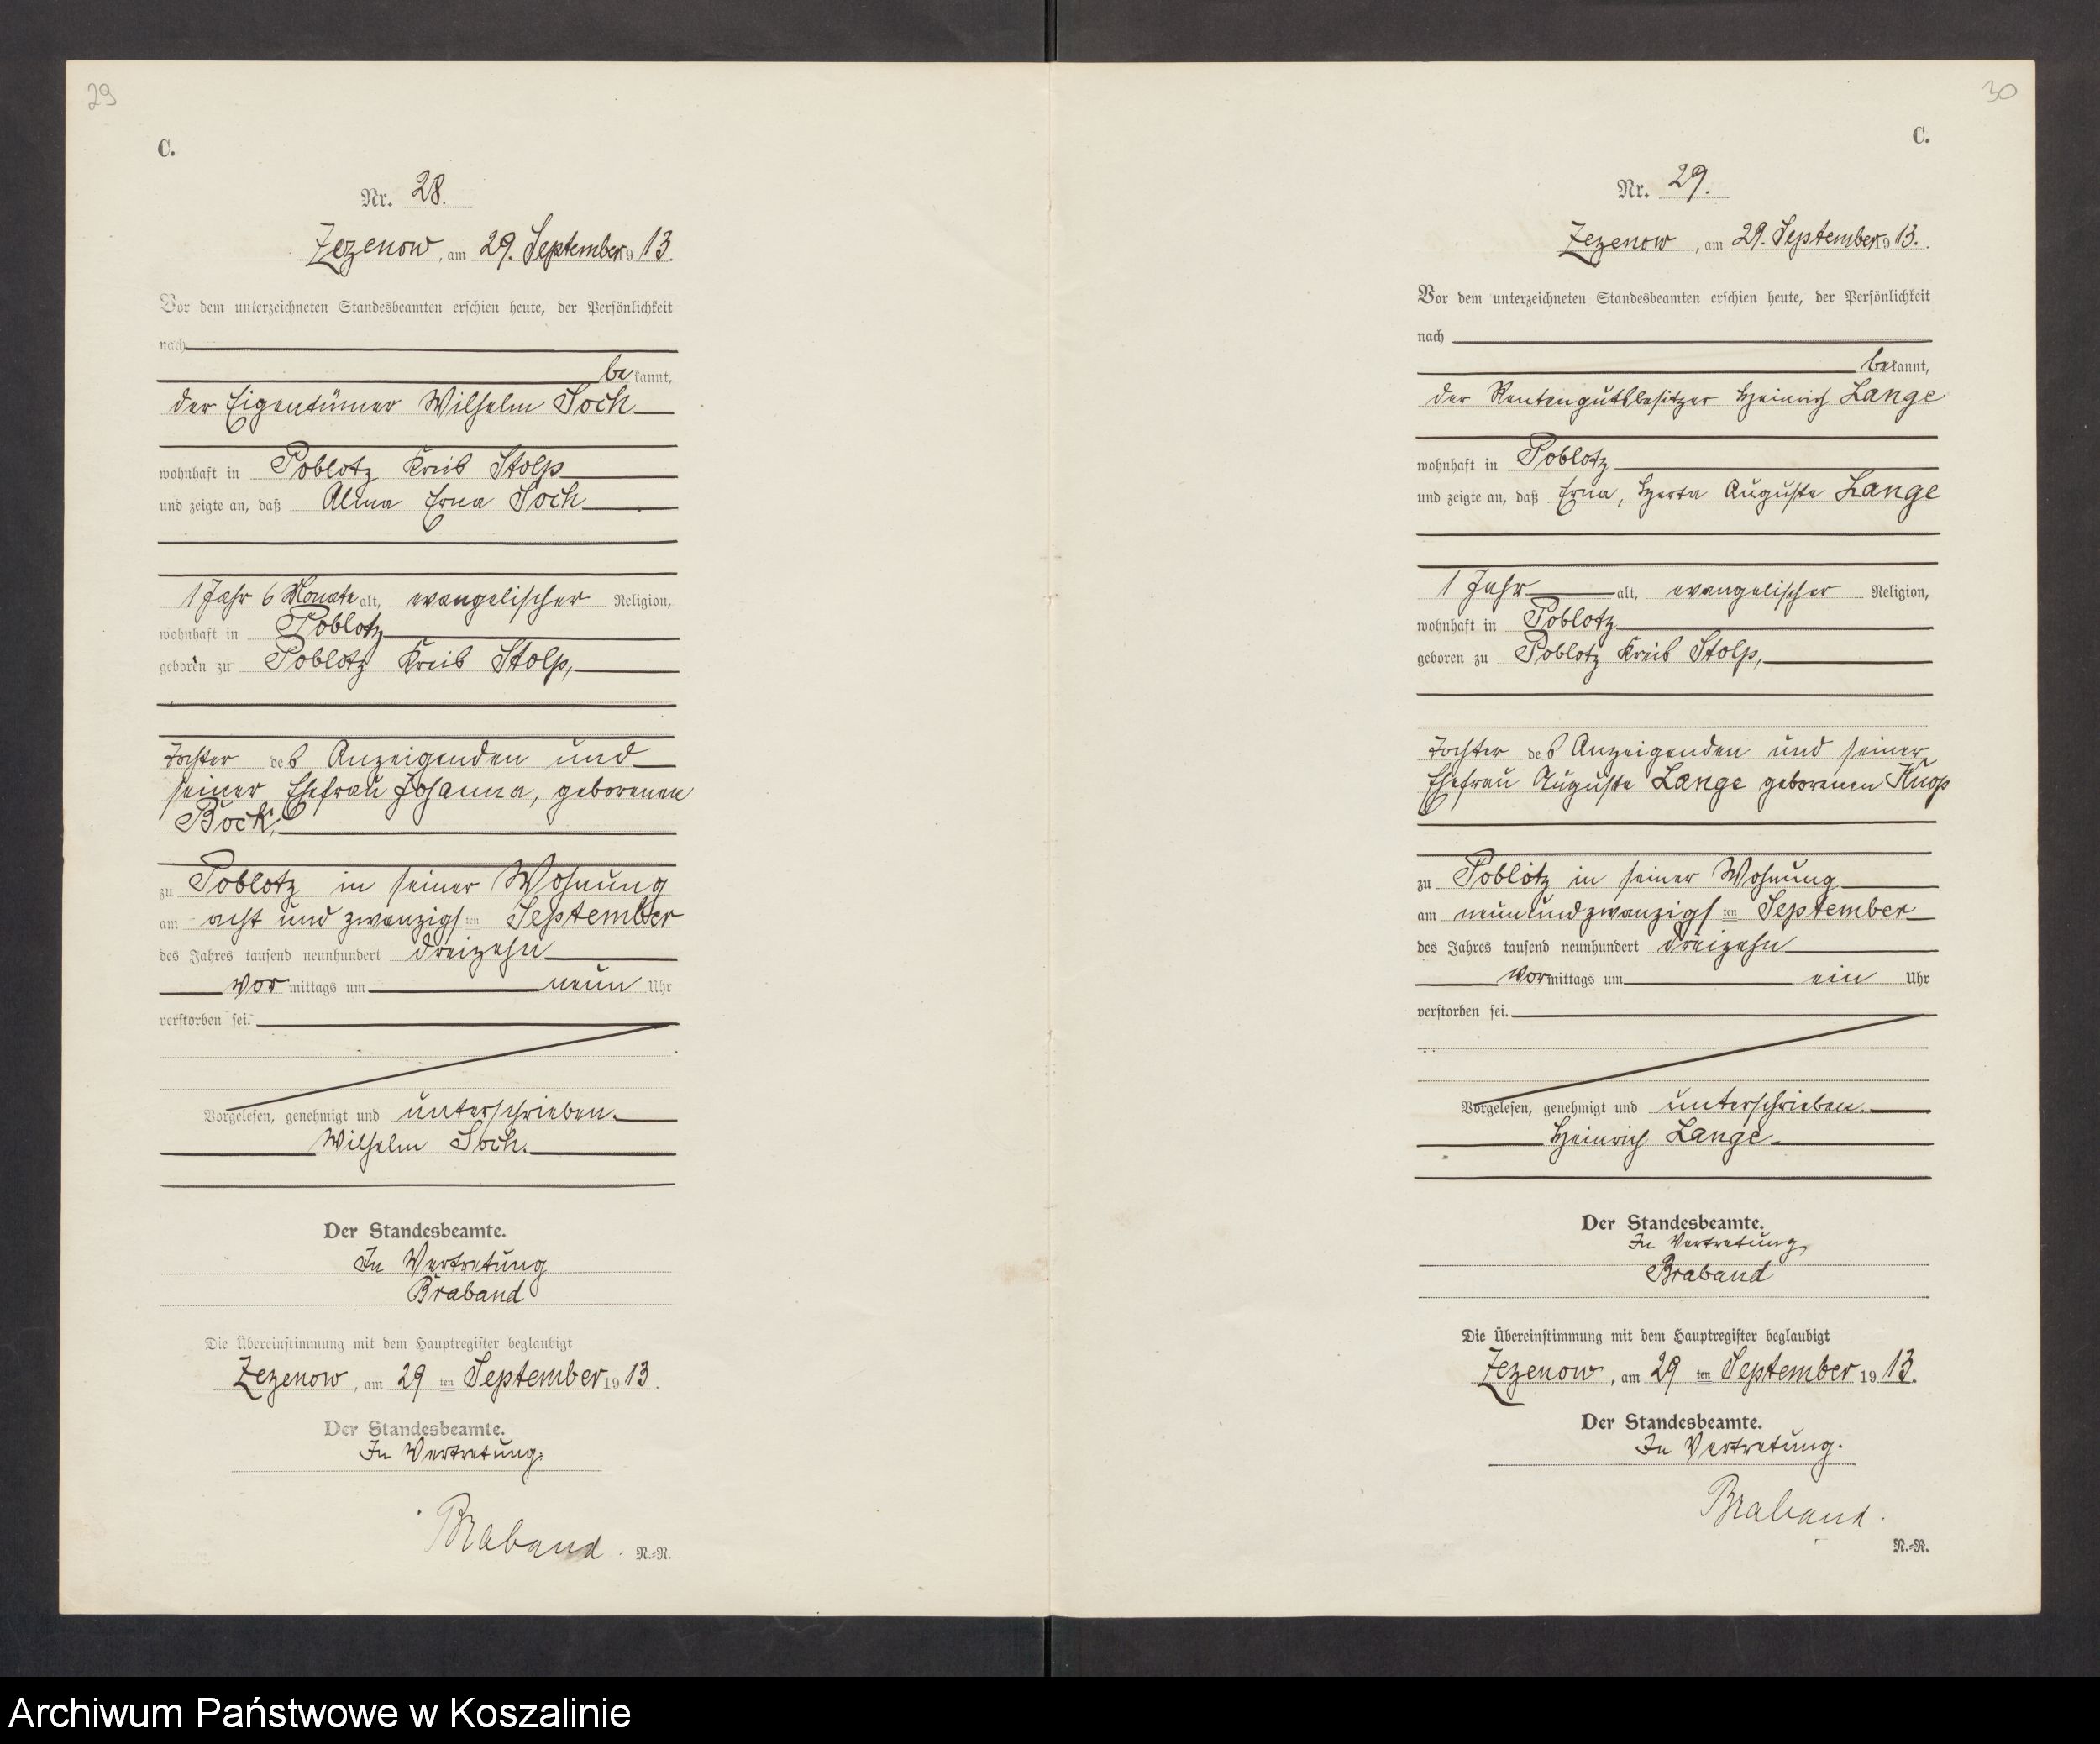 29
C.
Nr. 28.
Zezenow, am 29. September 1913.
Vor dem unterzeichneten Standesbeamten erschien heute, der Persönlichkeit
nach
bekannt,
der Eigentümer Wilhelm Soch
wohnhaft in Poblotz Kreis Stolp
und zeigte an, daß Alma Erna Soch
1 Jahr 6 Monate alt, evangelischer Religion,
wohnhaft in Poblotz
geboren zu Poblotz Kreis Stolp,
Tochter des Anzeigenden und
seiner Ehefrau Johanna, geborenen
Bock,
zu Poblotz in seiner Wohnung
am acht und zwanzigsten September
des Jahres tausend neunhundert dreizehn
vormittags um neun Uhr
verstorben sei.
Vorgelesen, genehmigt und unterschrieben.
Wilhelm Soch.
Der Standesbeamte.
In Vertretung
Braband
Die Übereinstimmung mit dem Hauptregister beglaubigt
Zezenow, am 29 ten September 1913.
Der Standesbeamte.
In Vertretung.
Braband.
N.-R.
30
C.
Nr. 29.
Zezenow, am 29. September 1913.
Vor dem unterzeichneten Standesbeamten erschien heute, der Persönlichkeit
nach
bekannt,
der Rentengutsbesitzer Heinrich Lange
wohnhaft in Poblotz
und zeigte an, daß Erna, Herta Auguste Lange
1 Jahr alt, evangelischer Religion,
wohnhaft in Poblotz
geboren zu Poblotz Kreis Stolp,
Tochter des Anzeigenden und seiner
Ehefrau Auguste Lange geborenen Knop
zu Poblotz in seiner Wohnung
am neunundzwanzigsten September
des Jahres tausend neunhundert dreizehn
vormittags um ein Uhr
verstorben sei.
Vorgelesen, genehmigt und unterschrieben.
Heinrich Lange
Der Standesbeamte.
In Vertretung
Braband
Die Übereinstimmung mit dem Hauptregister beglaubigt
Zezenow, am 29 ten September 1913.
Der Standesbeamte.
In Vertretung.
Braband.
N.-R.
Archiwum Państwowe w Koszalinie